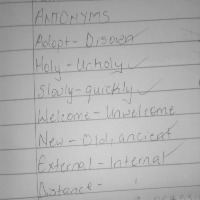 ANTONYMS
Adopt - Disown
Holy - Unholy
Slowly - quickly
Welcome - Unwelcome
New - Old, ancient
External - Internal
Distance -